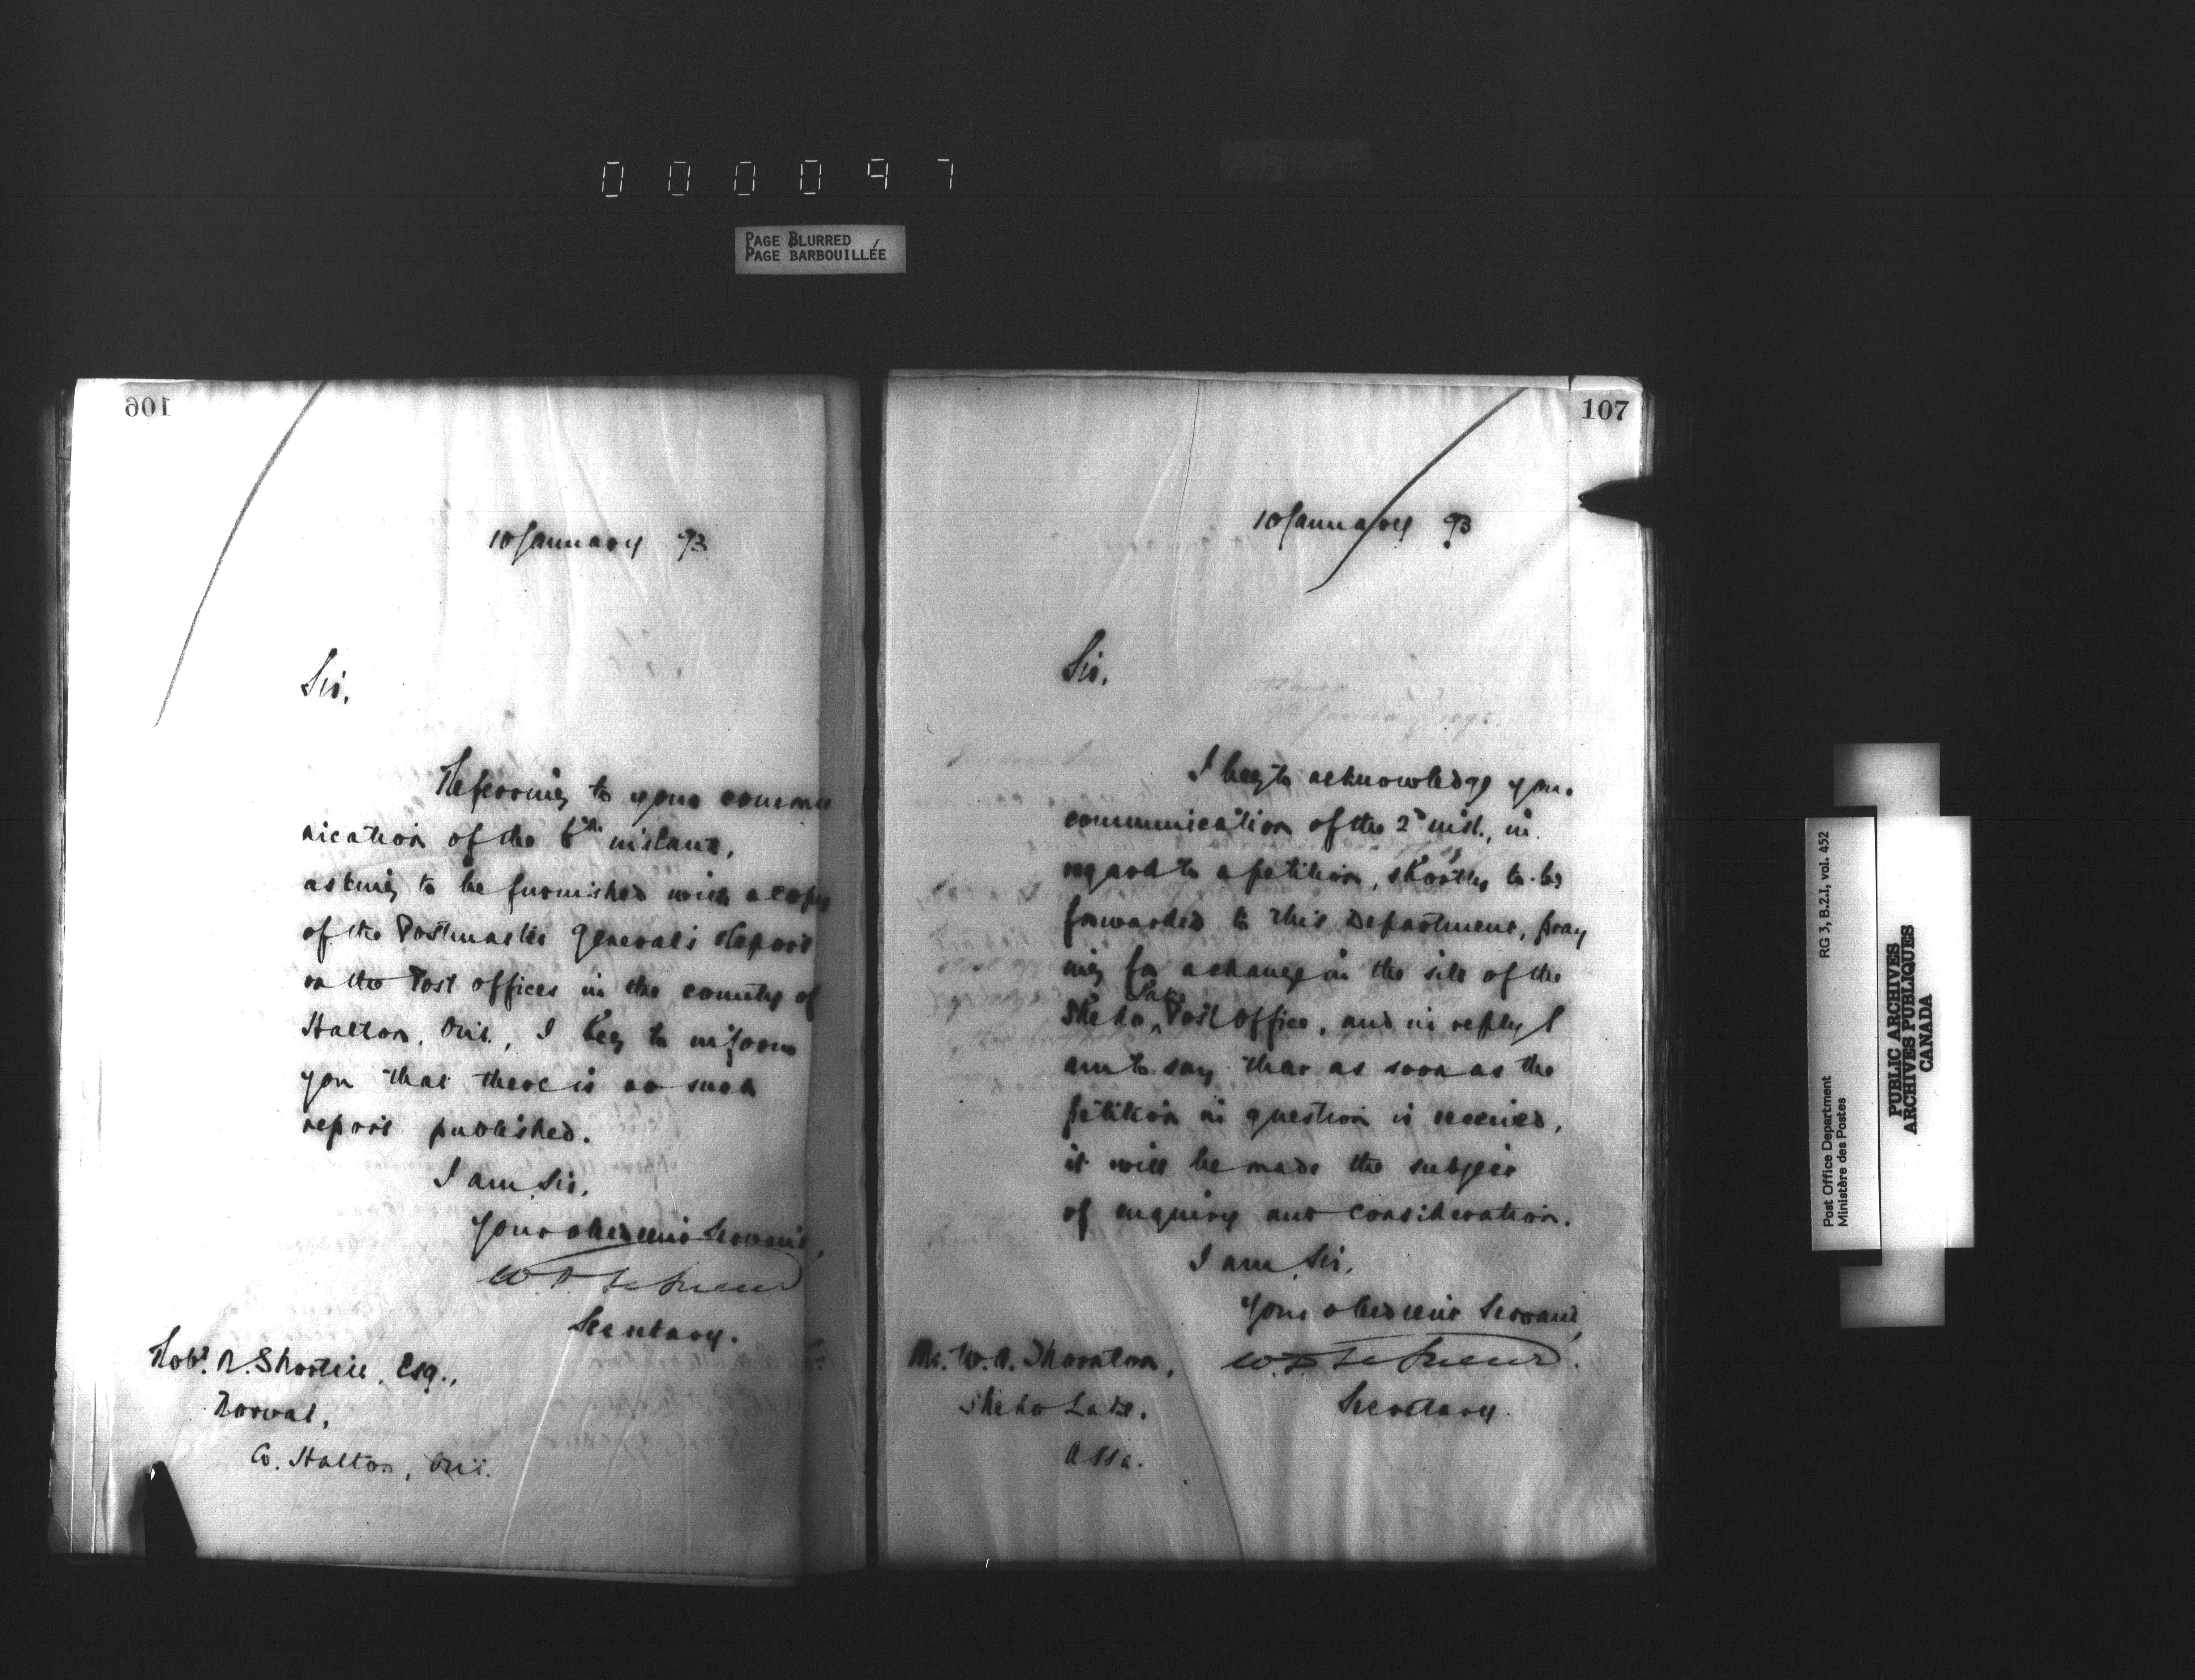 000097
PAGE BLURRED
PAGE BARBOUILLÉE
106
10 January 93
Sir,
Referring to your commu
nication of the 6th instant,
asking to be furnished with a copy
of the Postmaster General's Report
on the Post Offices in the county of
Halton, Ont., I beg to inform
you that there is no such
report published.
I am, Sir,
Your obedient Servant,
W. D. LeSueur
Secretary.
Robt. R. Shortill, Esq.,
Norval,
Co. Halton, Ont.
107
10 January 93
Sir,
I beg to acknowledge your
communication of the 2d inst., in
regard to a petition, shortly to be
forwarded to this Department, pray
ing for a change in the site of the
Sheho Lake Post Office, and in reply I
am to say that as soon as the
petition in question is received,
it will be made the subject
of enquiry and consideration.
I am, Sir,
Your obedient Servant,
W. D. LeSueur.
Secretary.
Mr. W. A. Thornton,
Sheho Lake,
Assa.
Post Office Department
Ministère des Postes
RG 3, B.2.I, vol. 452
PUBLIC ARCHIVES
ARCHIVES PUBLIQUES
CANADA